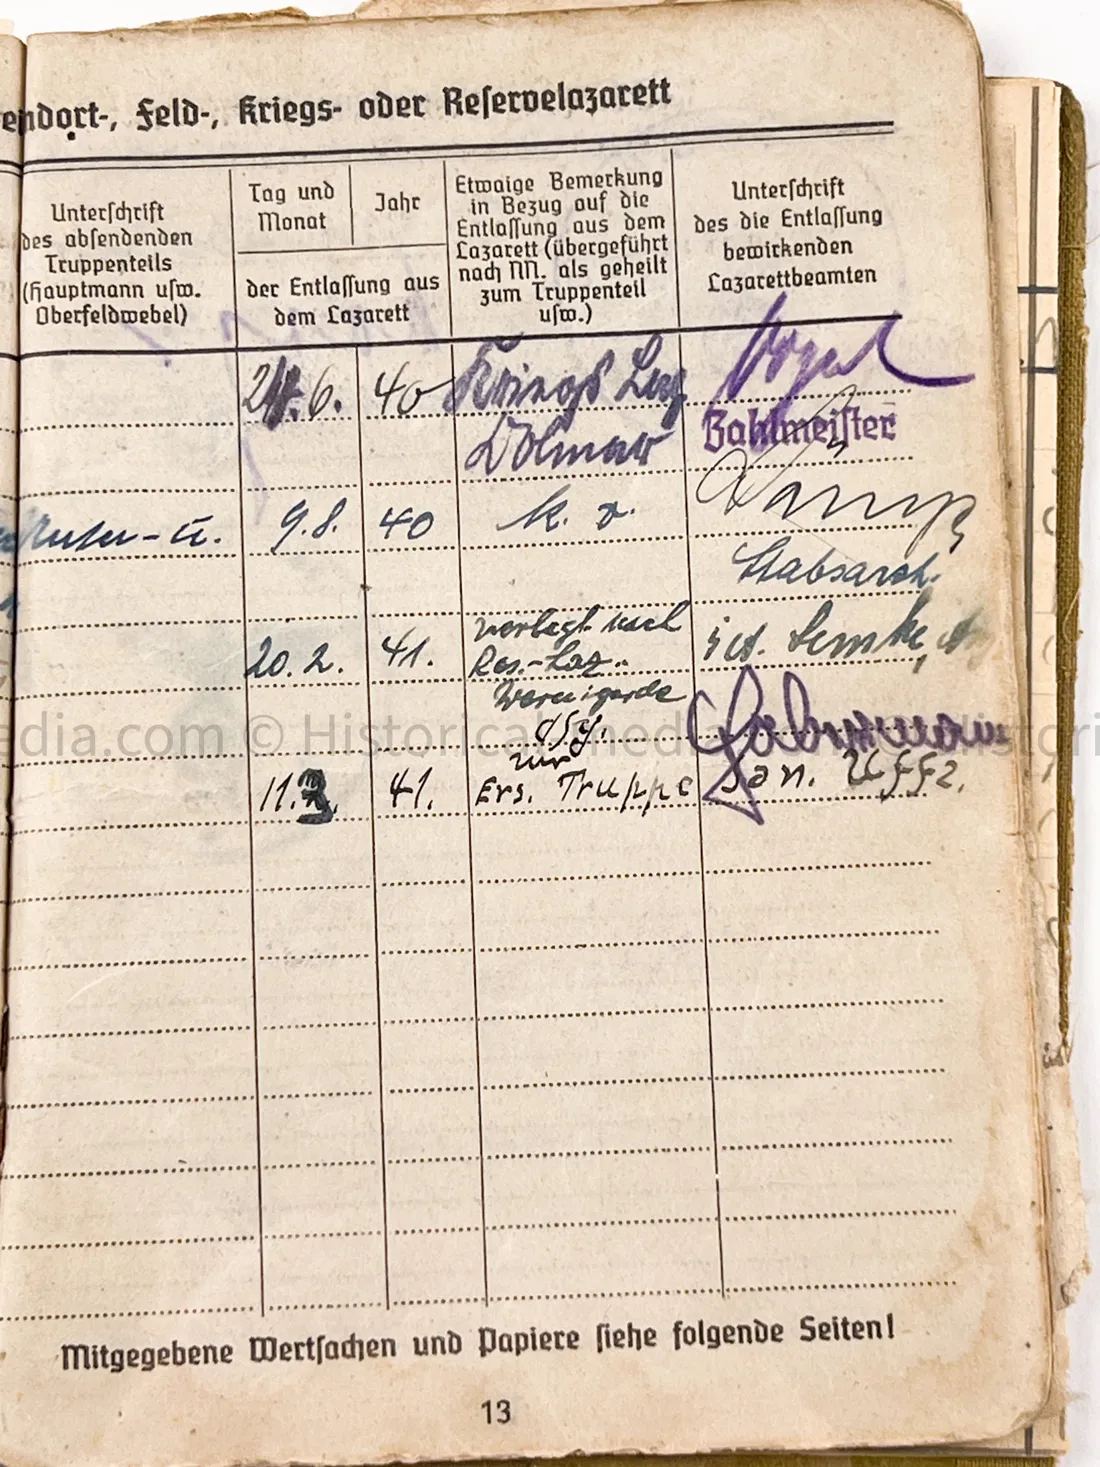 endort-, Feld-, Kriegs- oder Reservelazarett
Unterschrift
des absendenden
Truppenteils
(Hauptmann usw.
Oberfeldwebel)
Tag und
Monat
Jahr
der Entlassung aus
dem Lazarett
Etwaige Bemerkung
in Bezug auf die
Entlassung aus dem
Lazarett (übergeführt
nach NN. als geheilt
zum Truppenteil
usw.)
Unterschrift
des die Entlassung
bewirkenden
Lazarettbeamten
6. 40 Kriegs Laz
Zahlmeister
9.8. 40 k. v.
Stabsarzt.
20.2. 41. verlegt nach
Res.-Laz.
Wernigerode
dfg.
zur
11.3. 41. Ers. Truppe San. Uffz.
edia.com © Historical media Histori
Mitgegebene Wertsachen und Papiere siehe folgende Seiten!
13